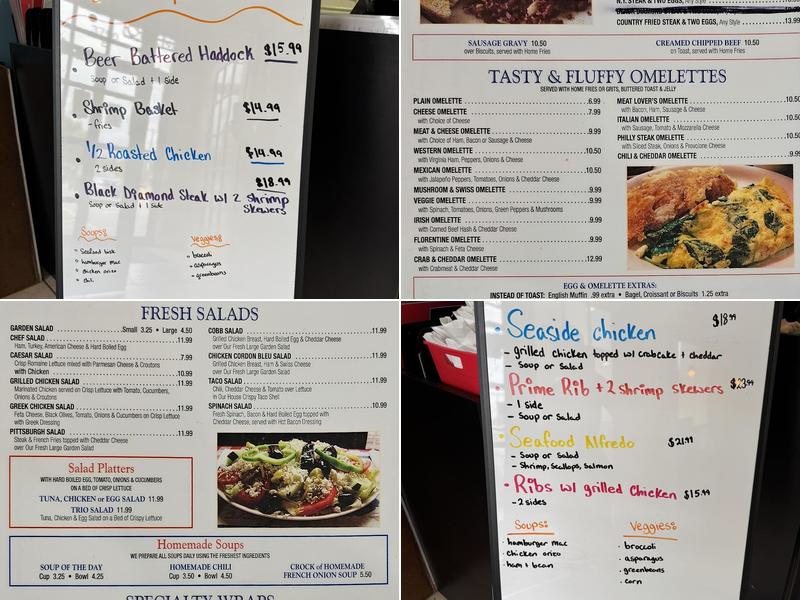 Beer Battered Haddock $15.99
Soup or Salad + 1 side
Shrimp Basket $14.99
- fries
1/2 Roasted Chicken $14.99
2 sides
$18.99
Black Diamond Steak w/ 2 shrimp
Soup or Salad + 1 side skewers
Soups: Veggies:
Seafood bisk
hamburger mac
chicken orzo
chili
broccoli
asparagus
greenbeans
N.Y. STEAK & TWO EGGS, Any Style
COUNTRY FRIED STEAK & TWO EGGS, Any Style 13.99
SAUSAGE GRAVY 10.50
over Biscuits, served with Home Fries
CREAMED CHIPPED BEEF 10.50
on Toast, served with Home Fries
TASTY & FLUFFY OMELETTES
SERVED WITH HOME FRIES OR GRITS, BUTTERED TOAST & JELLY
PLAIN OMELETTE 6.99
CHEESE OMELETTE 7.99
with Choice of Cheese
MEAT & CHEESE OMELETTE 9.99
with Choice of Ham, Bacon or Sausage & Cheese
WESTERN OMELETTE 10.50
with Virginia Ham, Peppers, Onions & Cheese
MEXICAN OMELETTE 10.50
with Jalapeño Peppers, Tomatoes, Onions & Cheddar Cheese
MUSHROOM & SWISS OMELETTE 9.99
VEGGIE OMELETTE 9.99
with Spinach, Tomatoes, Onions, Green Peppers & Mushrooms
IRISH OMELETTE 9.99
with Corned Beef Hash & Cheddar Cheese
FLORENTINE OMELETTE 9.99
with Spinach & Feta Cheese
CRAB & CHEDDAR OMELETTE 12.99
with Crabmeat & Cheddar Cheese
MEAT LOVER'S OMELETTE 10.50
with Bacon, Ham, Sausage & Cheese
ITALIAN OMELETTE 10.50
with Sausage, Tomato & Mozzarella Cheese
PHILLY STEAK OMELETTE 10.50
with Sliced Steak, Onions & Provolone Cheese
CHILI & CHEDDAR OMELETTE 9.99
EGG & OMELETTE EXTRAS:
INSTEAD OF TOAST: English Muffin .99 extra • Bagel, Croissant or Biscuits 1.25 extra
FRESH SALADS
GARDEN SALAD Small 3.25 • Large 4.50
CHEF SALAD 11.99
Ham, Turkey, American Cheese & Hard Boiled Egg
CAESAR SALAD 7.99
Crisp Romaine Lettuce mixed with Parmesan Cheese & Croutons
with Chicken 10.99
GRILLED CHICKEN SALAD 11.99
Marinated Chicken served on Crisp Lettuce with Tomato, Cucumbers,
Onions & Croutons
GREEK CHICKEN SALAD 11.99
Feta Cheese, Black Olives, Tomato, Onions & Cucumbers on Crisp Lettuce
with Greek Dressing
PITTSBURGH SALAD 11.99
Steak & French Fries topped with Cheddar Cheese
over Our Fresh Large Garden Salad
COBB SALAD 11.99
Grilled Chicken Breast, Hard Boiled Egg & Cheddar Cheese
over Our Fresh Large Garden Salad
CHICKEN CORDON BLEU SALAD 11.99
Grilled Chicken Breast, Ham & Swiss Cheese
over Our Fresh Large Garden Salad
TACO SALAD 11.99
Chili, Cheddar Cheese & Tomato over Lettuce
in Our House Crispy Taco Shell
SPINACH SALAD 10.99
Fresh Spinach, Bacon & Hard Boiled Egg topped with
Cheddar Cheese, served with Hot Bacon Dressing
Salad Platters
WITH HARD BOILED EGG, TOMATO, ONIONS & CUCUMBERS
ON A BED OF CRISP LETTUCE
TUNA, CHICKEN or EGG SALAD 11.99
TRIO SALAD 11.99
Tuna, Chicken & Egg Salad on a Bed of Crispy Lettuce
Homemade Soups
WE PREPARE ALL SOUPS DAILY USING THE FRESHEST INGREDIENTS
SOUP OF THE DAY
Cup 3.25 • Bowl 4.25
HOMEMADE CHILI
Cup 3.50 • Bowl 4.50
CROCK of HOMEMADE
FRENCH ONION SOUP 5.50
SPECIALTY WRAPS
Seaside chicken $18.99
- grilled chicken topped w/ crabcake + cheddar
- Soup or Salad
Prime Rib + 2 shrimp skewers $23.99
- 1 side
- Soup or Salad
Seafood Alfredo $21.99
- Soup or Salad
- Shrimp, Scallops, Salmon
Ribs w/ grilled Chicken $15.99
- 2 sides
Soups: Veggies:
hamburger mac
chicken orzo
ham + bean
broccoli
asparagus
greenbeans
corn